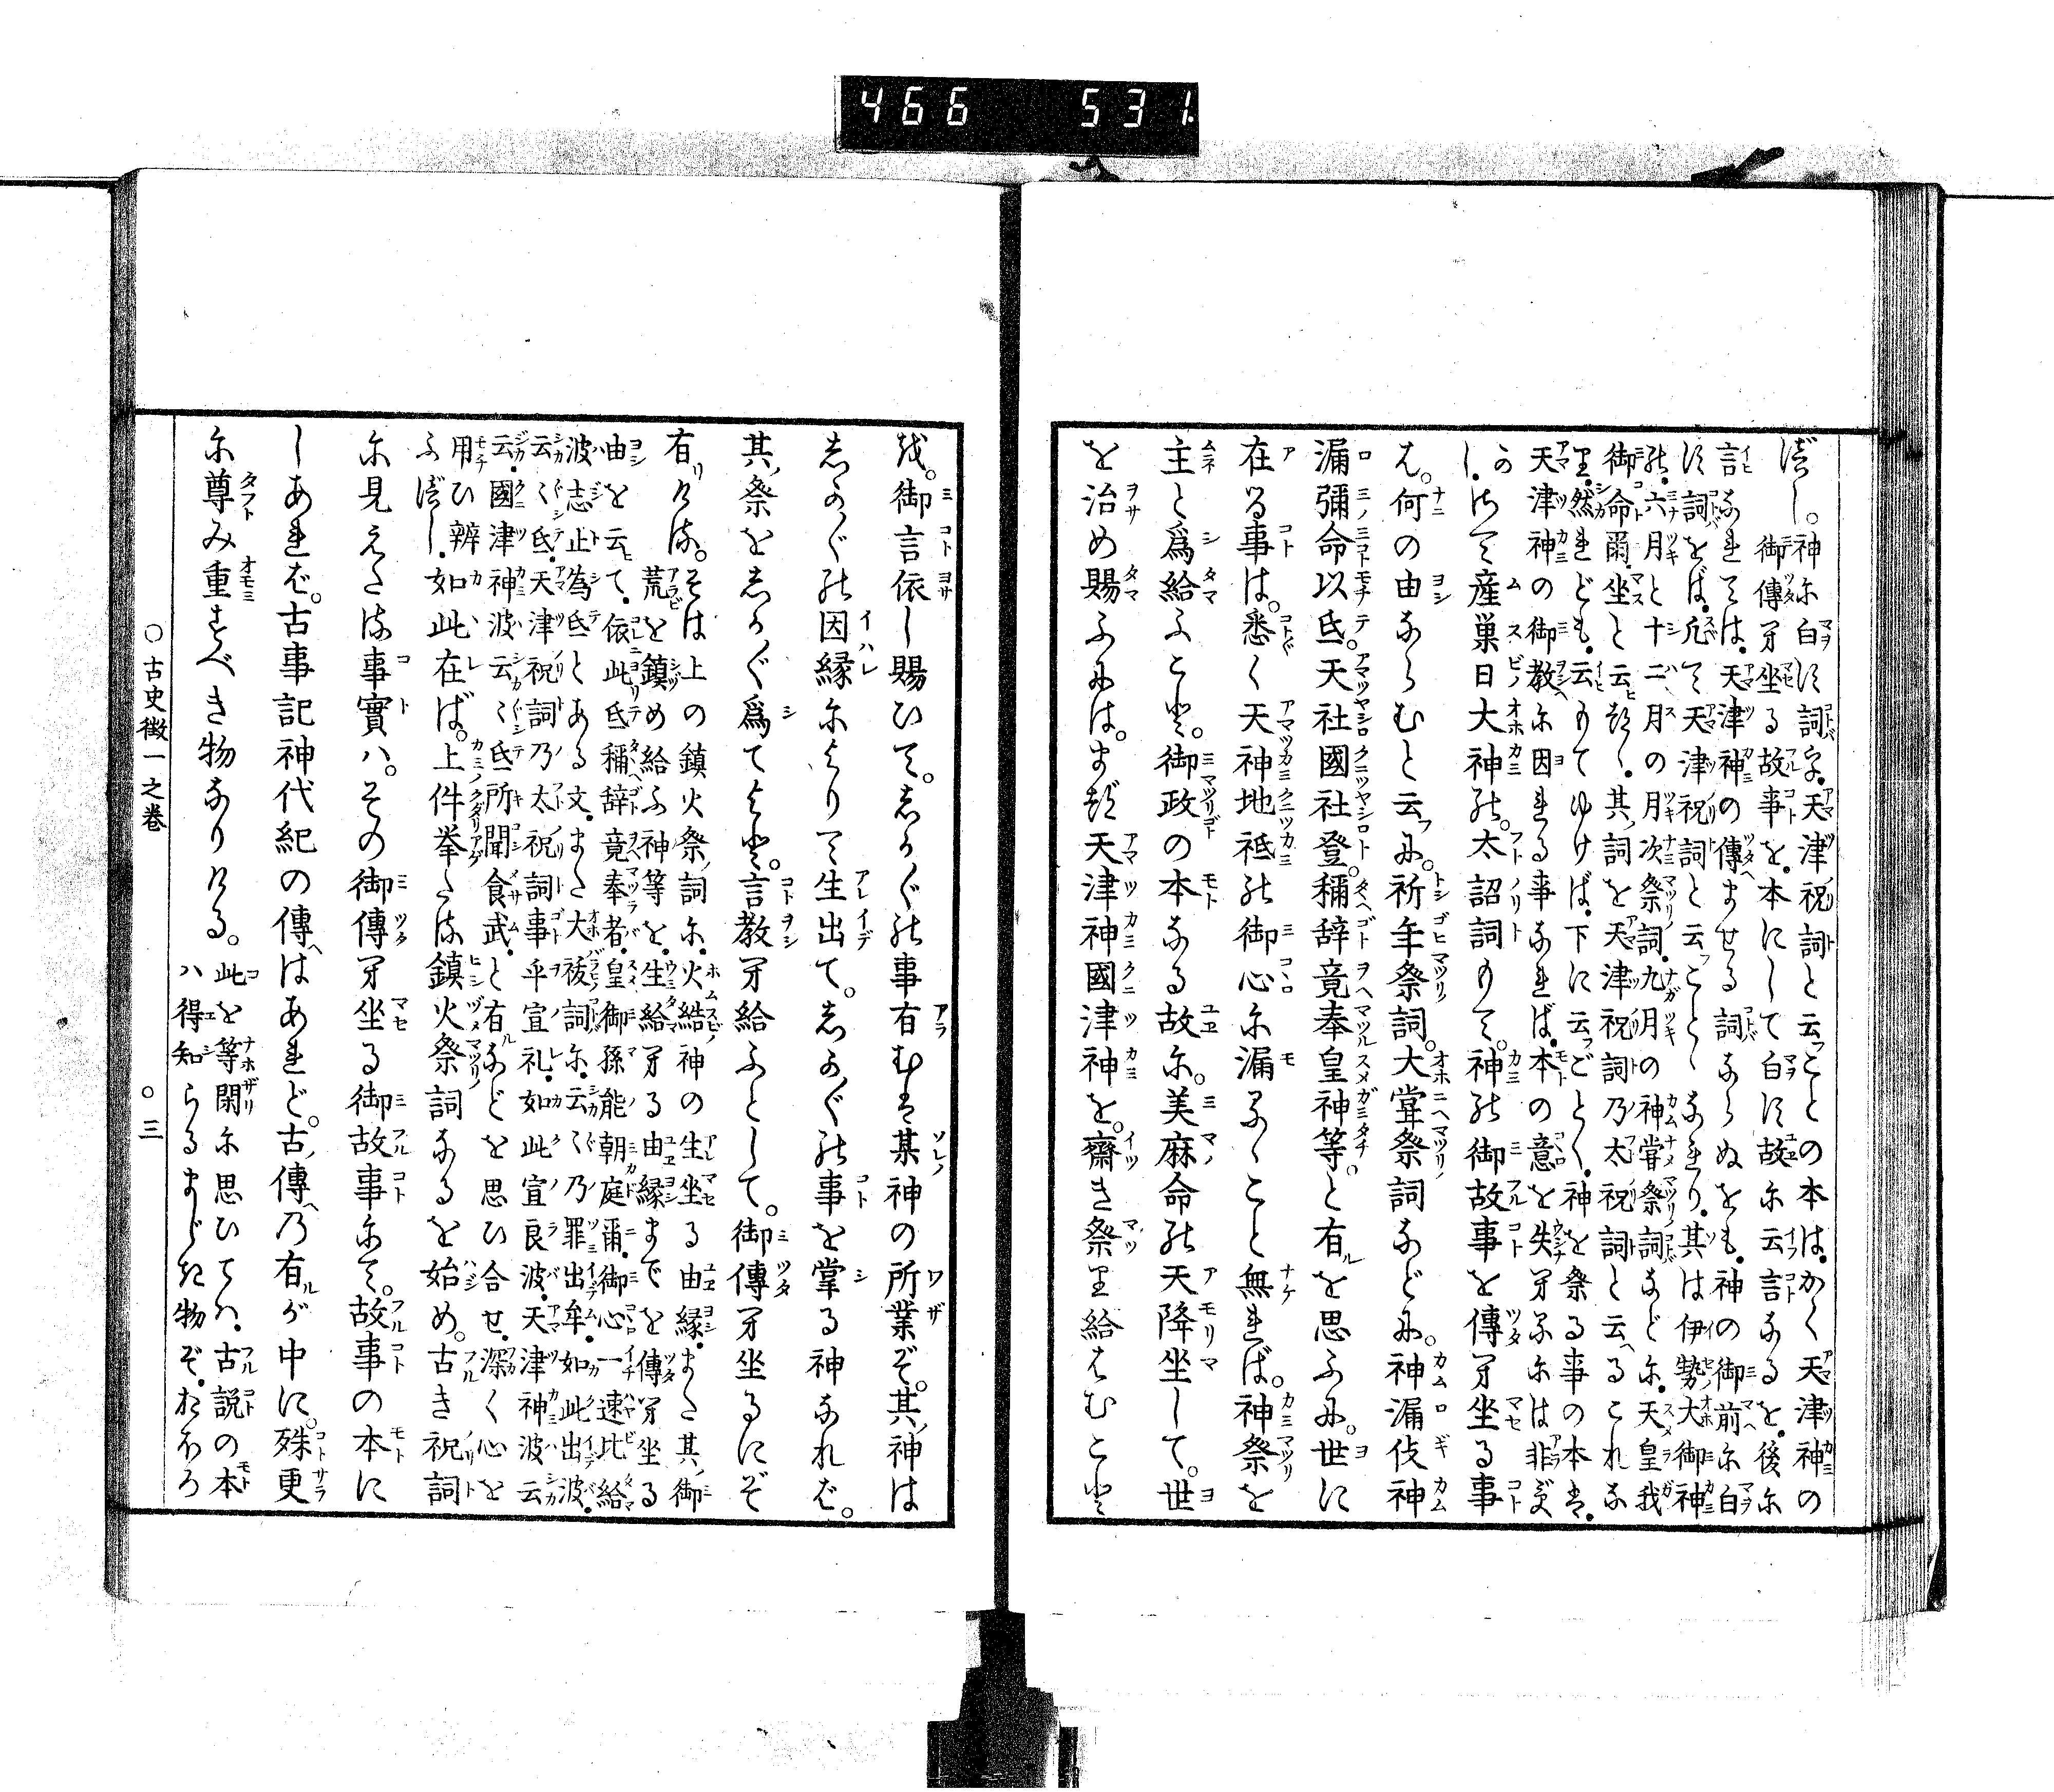 466 531.
べし。神に白す詞を、天津祝詞と云ことの本は、かく天津神の
御傳へ坐る故事を、本にして白す故に云言なるを、後に
言なれては、天津神の傳ませる詞ならぬをも、神の御前に白
す詞をば、凡て天津祝詞と云ことゝなれり、其は伊勢大御神
の、六月と十二月の月次祭詞、九月の神甞祭詞などに、天皇我
御命爾坐と云ひまた、其詞を天津祝詞乃太祝詞と云へるこれな
り、然れども、云もてゆけば、下に云ごとく、神を祭る事の本は、
天津神の御教に因れる事なれば、本の意を失へるには非ずか
し、
さて産巣日大神の。太詔詞もて。神の御故事を傳へ坐る事
は。何の由ならむと云ふに。祈年祭詞。大甞祭詞などに。神漏伎神
漏彌命以氐。天社國社登。稱辞竟奉皇神等。と有るを思ふに。世に
在る事は。悉く天神地祇の御心に漏るゝこと無れば。神祭を
主と爲給ふこと。御政の本なる故に。美麻命の天降坐して。世
を治め賜ふには。まづ天津神國津神を。齋き祭り給はむこと
を。御言依し賜ひて。しかくの事有むは某神の所業ぞ。其神は
しかくの因縁によりて生出て。しかくの事を掌る神なれば。
其祭をしかく爲てよと。言教へ給ふとして。御傳へ坐るにぞ
有りける。そは上の鎮火祭詞に、火結神の生坐る由縁、また其御
荒を鎮め給ふ神等を、生給へる由縁までを傳へ坐る
由を云て、依此氐稱辞竟奉者、皇御孫能朝庭爾、御心一速比給
波志止為氐とある文、また大祓詞に、云々乃罪出牟、如此出波、
云々氐、天津祝詞乃太祝詞事乎宣礼、如此宣良波、天津神波云
云、國津神波云々氐所聞食武、と有るなどを思ひ合せ、深く心を
用ひ辨ふべし、
如此在ば。上件挙たる鎮火祭詞なるを始め。古き祝詞
に見えたる事實ハ。その御傳へ坐る御故事にて。故事の本に
しあれば。古事記神代紀の傳へはあれど。古傳乃有が中に。殊更
に尊み重すべき物なりける。此を等閑に思ひてハ、古説の本
ハ得知らるまじき物ぞ、おほろ
○古史徴一之巻 ○三